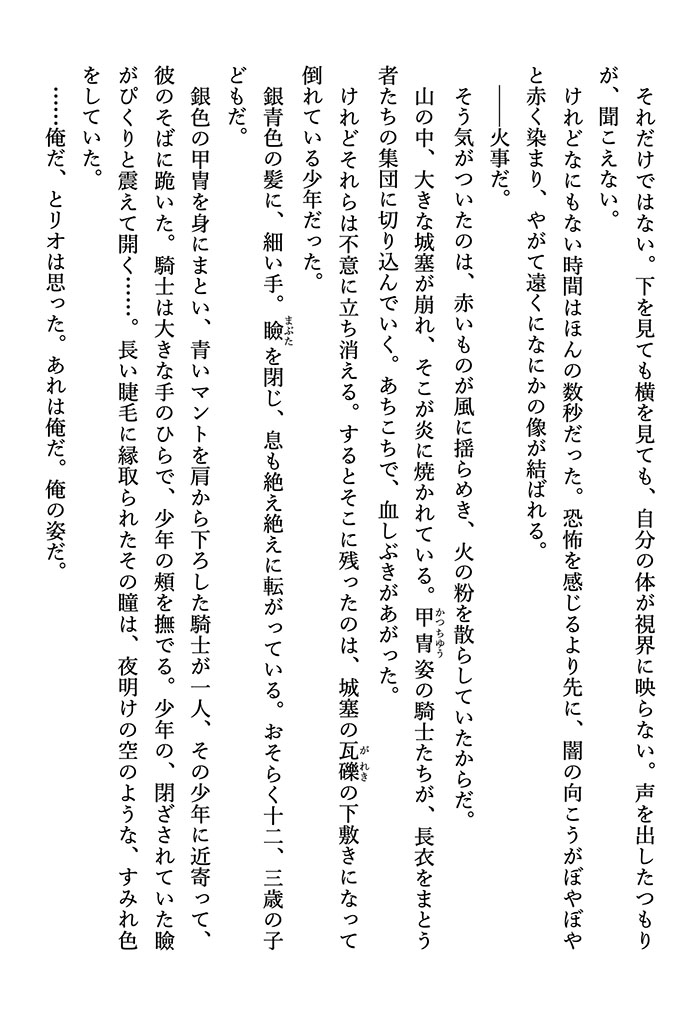 それだけではない。下を見ても横を見ても、自分の体が視界に映らない。声を出したつもり
が、聞こえない。
　けれどなにもない時間はほんの数秒だった。恐怖を感じるより先に、闇の向こうがぼやぼや
と赤く染まり、やがて遠くになにかの像が結ばれる。
　――火事だ。
　そう気がついたのは、赤いものが風に揺らめき、火の粉を散らしていたからだ。
　山の中、大きな城塞が崩れ、そこが炎に焼かれている。甲冑姿の騎士たちが、長衣をまとう
者たちの集団に切り込んでいく。あちこちで、血しぶきがあがった。
　けれどそれらは不意に立ち消える。するとそこに残ったのは、城塞の瓦礫の下敷きになって
倒れている少年だった。
　銀青色の髪に、細い手。瞼を閉じ、息も絶え絶えに転がっている。おそらく十二、三歳の子
どもだ。
　銀色の甲冑を身にまとい、青いマントを肩から下ろした騎士が一人、その少年に近寄って、
彼のそばに跪いた。騎士は大きな手のひらで、少年の頬を撫でる。少年の、閉ざされていた瞼
がぴくりと震えて開く……。長い睫毛に縁取られたその瞳は、夜明けの空のような、すみれ色
をしていた。
　……俺だ、とリオは思った。あれは俺だ。俺の姿だ。